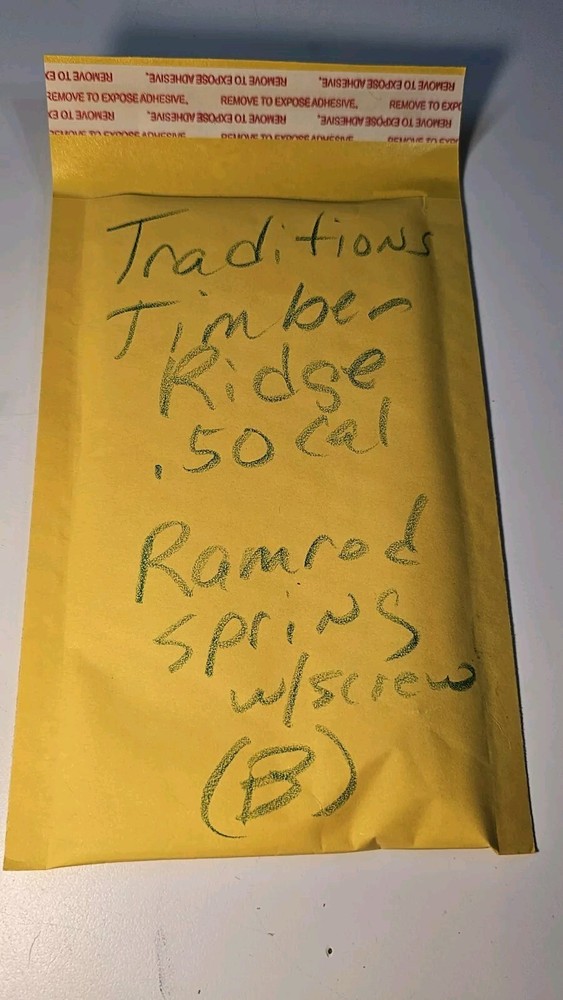 REMOVE TO EXPOSE ADHESIVE. REMOVE TO EX
REMOVE TO EXPOSE ADHESIVE. REMOVE TO EXPOSE ADHESIVE. REMOVE TO EXPO
REMOVE TO EXPOSE ADHESIVE. REMOVE TO EXPOSE ADHESIVE. REMOVE TO EX
REMOVE TO EXPOSE ADHESIVE REMOVE TO EXPOSE ADHESIVE REMOVE TO EXP
Traditions
Timber
Ridge
.50 cal
Ramrod
spring
w/screw
(B)